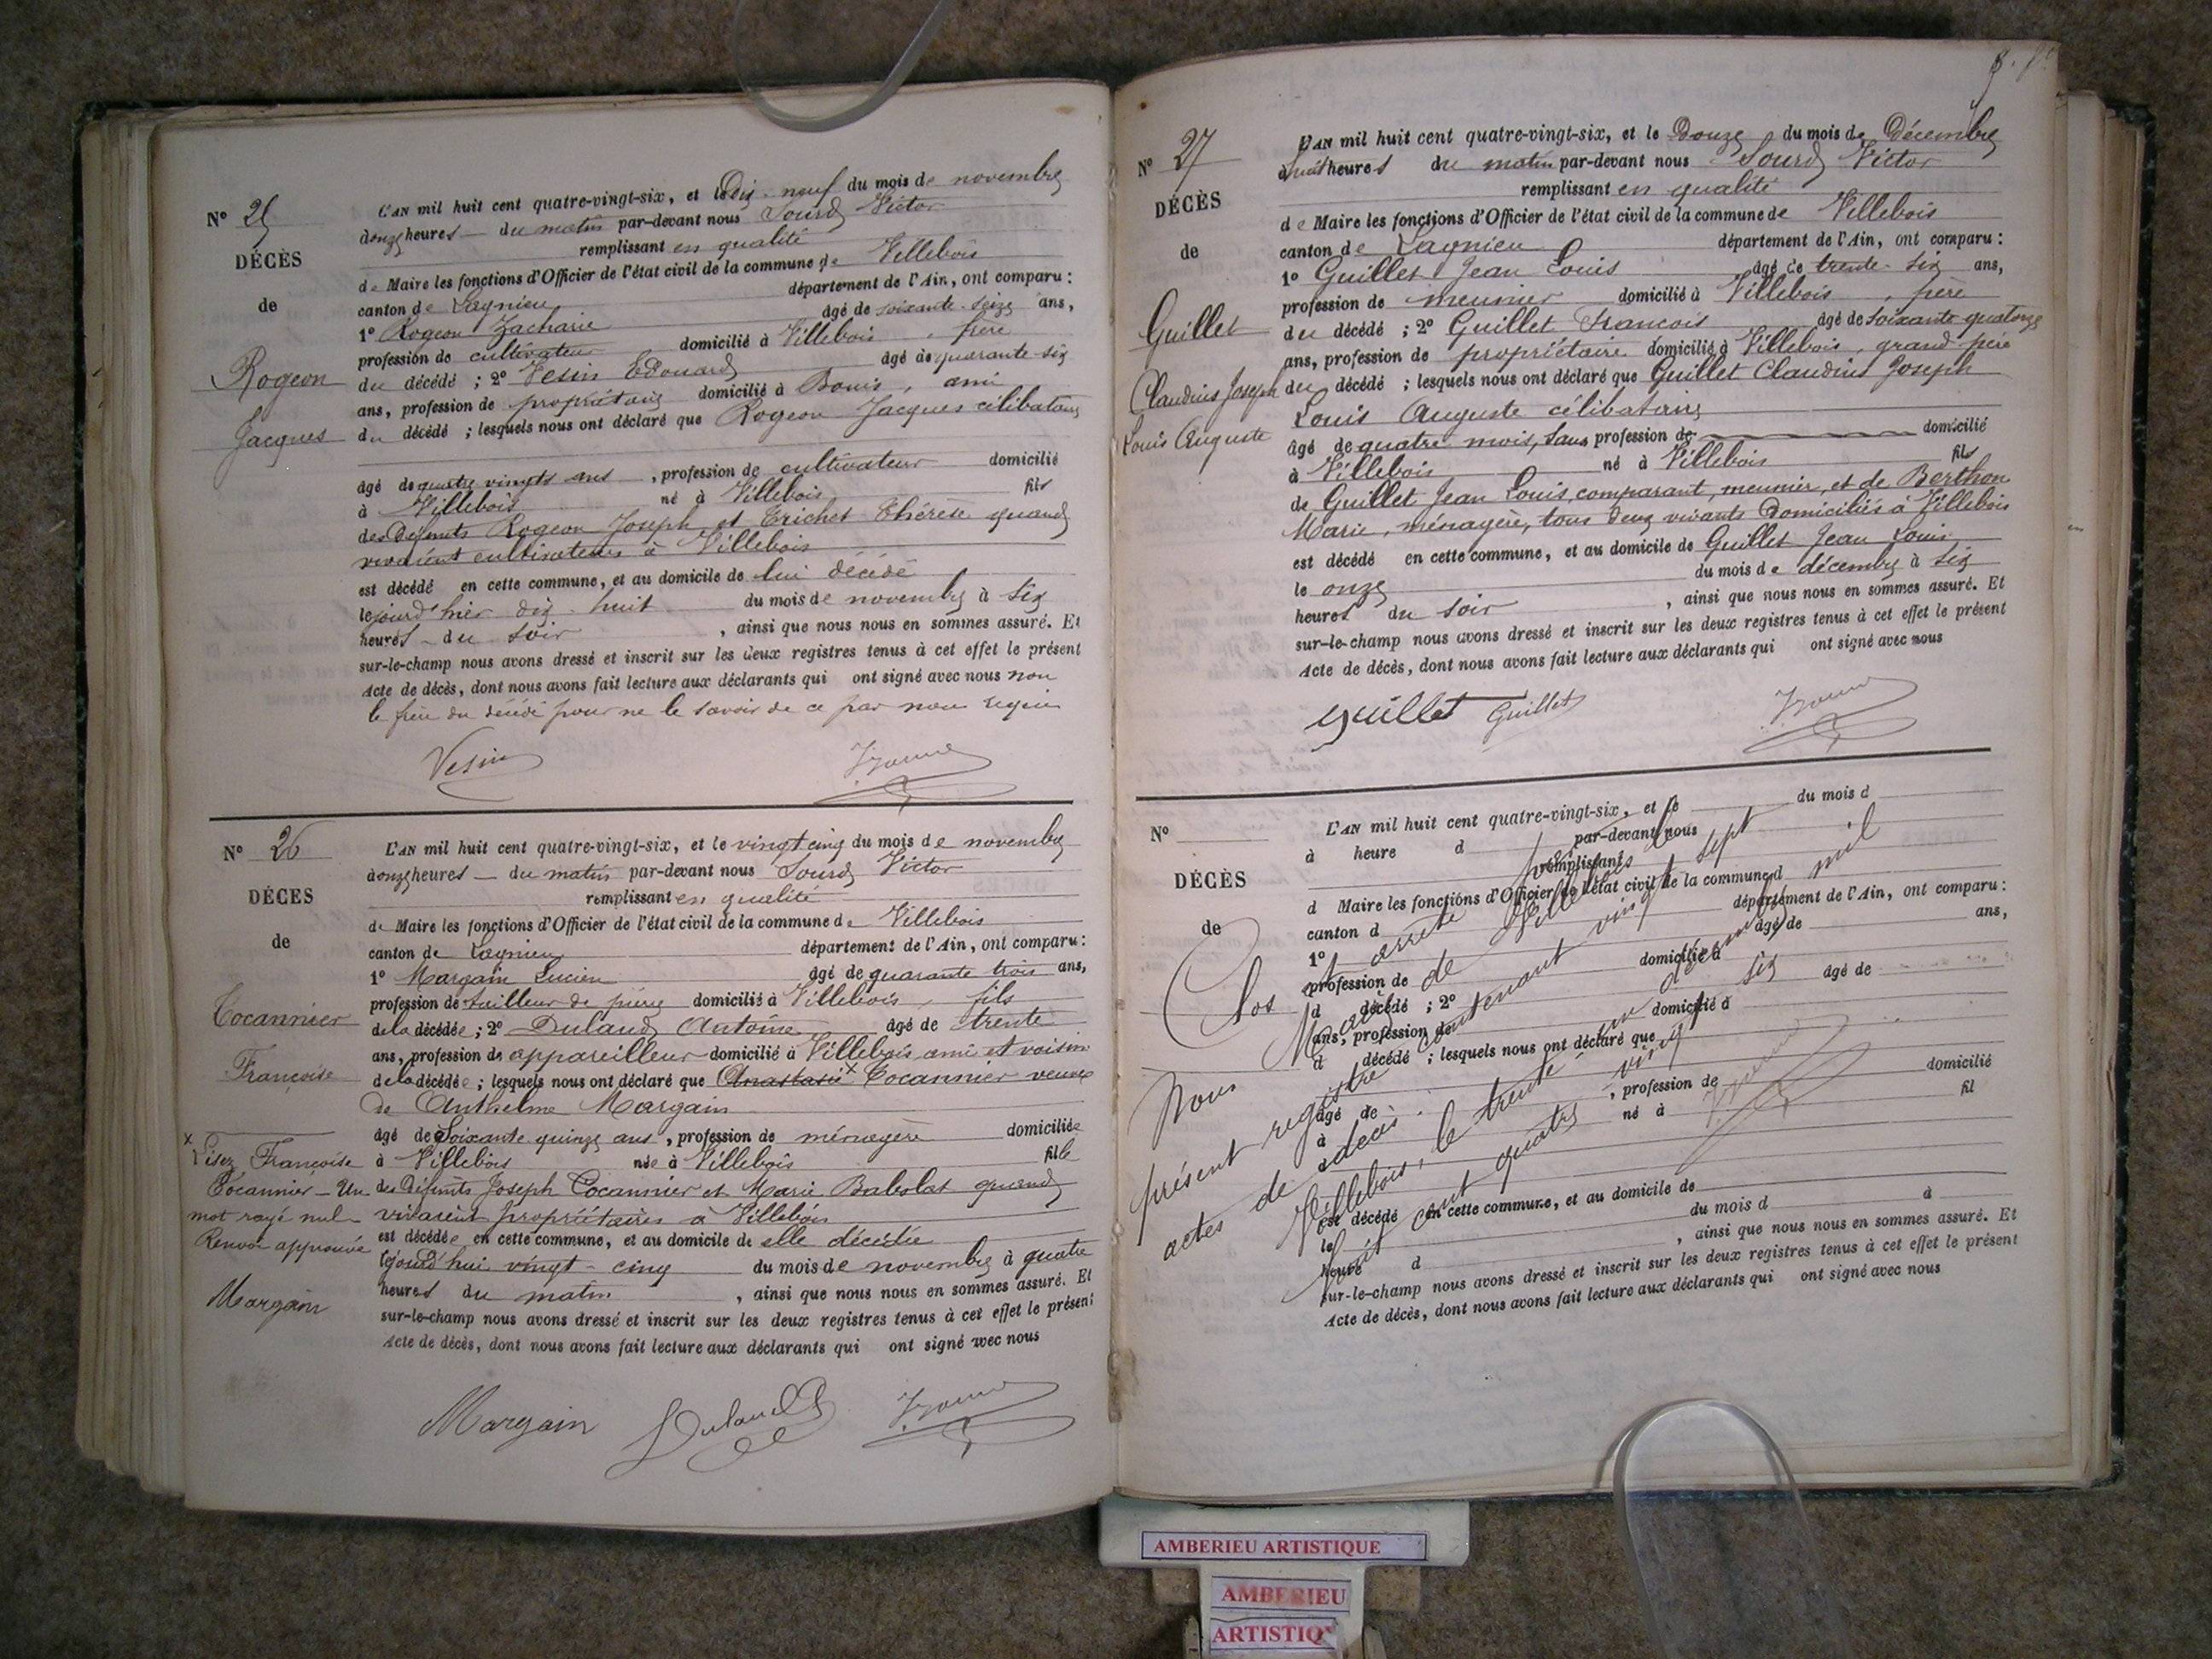 N° 25
DÉCÈS
de
Rogeon
Jacques
L'AN mil huit cent quatre-vingt-six, et le Dix-neuf du mois de novembre
à onze heures du matin par-devant nous Sourd Victor
remplissant en qualité
de Maire les fonctions d'Officier de l'état civil de la commune de Villebois
canton de Lagnieu département de l'Ain, ont comparu :
1° Rogeon Zacharie âgé de soixante-seize ans,
profession de cultivateur domicilié à Villebois, frère
du décédé ; 2° Vesin Edouard âgé de quarante-six
ans, profession de propriétaire domicilié à Bouis, ami
du décédé ; lesquels nous ont déclaré que Rogeon Jacques célibataire
âgé de quatre vingts ans, profession de cultivateur domicilié
à Villebois né à Villebois fils
des Défunts Rogeon Joseph et Trichet Thérèse quand
vivaient cultivateurs à Villebois
est décédé en cette commune, et au domicile de lui décédé
le jourd'hier dix-huit du mois de novembre à six
heures du soir, ainsi que nous nous en sommes assuré. Et
sur-le-champ nous avons dressé et inscrit sur les deux registres tenus à cet effet le présent
Acte de décès, dont nous avons fait lecture aux déclarants qui ont signé avec nous non
le frère du décédé pour ne le savoir de ce par nous requis
Vesin
N° 26
DÉCES
de
Cocannier
Françoise
x Lisez Françoise
Cocannier - Un
mot rayé nul
Renvoi approuvé
Margain
L'AN mil huit cent quatre-vingt-six, et le vingt cinq du mois de novembre
à onze heures du matin par-devant nous Sourd Victor
remplissant en qualité
de Maire les fonctions d'Officier de l'état civil de la commune de Villebois
canton de Lagnieu département de l'Ain, ont comparu :
1° Margain Lucien âgé de quarante trois ans,
profession de tailleur de pierre domicilié à Villebois, fils
de la décédée ; 2° Dulaud Antoine âgé de trente
ans, profession de appareilleur domicilié à Villebois ami et voisin
de la décédée ; lesquels nous ont déclaré que Anastasie x Cocannier veuve
de Anthelme Margain
âgé de Soixante quinze ans, profession de ménagère domiciliée
à Villebois née à Villebois fille
des Défunts Joseph Cocannier et Marie Babolat quand
vivaient propriétaires à Villebois
est décédée en cette commune, et au domicile de elle décédée
le jourd'hui vingt-cinq du mois de novembre à quatre
heures du matin, ainsi que nous nous en sommes assuré. Et
sur-le-champ nous avons dressé et inscrit sur les deux registres tenus à cet effet le présent
Acte de décès, dont nous avons fait lecture aux déclarants qui ont signé avec nous
Margain Dulaud
N° 27
DÉCÈS
de
Guillet
Claudius Joseph
Louis Auguste
L'AN mil huit cent quatre-vingt-six, et le Douze du mois de Décembre
à huit heures du matin par-devant nous Sourd Victor
remplissant en qualité
de Maire les fonctions d'Officier de l'état civil de la commune de Villebois
canton de Lagnieu département de l'Ain, ont comparu :
1° Guillet Jean Louis âgé de trente-six ans,
profession de meunier domicilié à Villebois, père
du décédé ; 2° Guillet François âgé de soixante quatorze
ans, profession de propriétaire domicilié à Villebois, grand père
du décédé ; lesquels nous ont déclaré que Guillet Claudius Joseph
Louis Auguste célibataire
âgé de quatre mois, sans profession de domicilié
à Villebois né à Villebois fils
de Guillet Jean Louis comparant, meunier, et de Berthon
Marie, ménagère, tous deux vivants Domiciliés à Villebois
est décédé en cette commune, et au domicile de Guillet Jean Louis
le onze du mois de décembre à six
heures du soir, ainsi que nous nous en sommes assuré. Et
sur-le-champ nous avons dressé et inscrit sur les deux registres tenus à cet effet le présent
Acte de décès, dont nous avons fait lecture aux déclarants qui ont signé avec nous
Guillet Guillet
N°
DÉCÈS
de
L'AN mil huit cent quatre-vingt-six, et le du mois d
à heure d par-devant nous
remplissant
d Maire les fonctions d'Officier de l'état civil de la commune d
canton d département de l'Ain, ont comparu :
1° âgé de ans,
profession de domicilié à
d décédé ; 2° âgé de
ans, profession de domicilié à
d décédé ; lesquels nous ont déclaré que
âgé de , profession de domicilié
à né à fil
est décédé en cette commune, et au domicile de
le du mois d à
heure d , ainsi que nous nous en sommes assuré. Et
sur-le-champ nous avons dressé et inscrit sur les deux registres tenus à cet effet le présent
Acte de décès, dont nous avons fait lecture aux déclarants qui ont signé avec nous
Clos et arrêté par
Nous Maire de Villebois le
présent registre contenant vingt sept
actes de décès.
Villebois, le trente un décembre mil
huit cent quatre vingt six
AMBERIEU ARTISTIQUE
AMBERIEU
ARTISTIQ